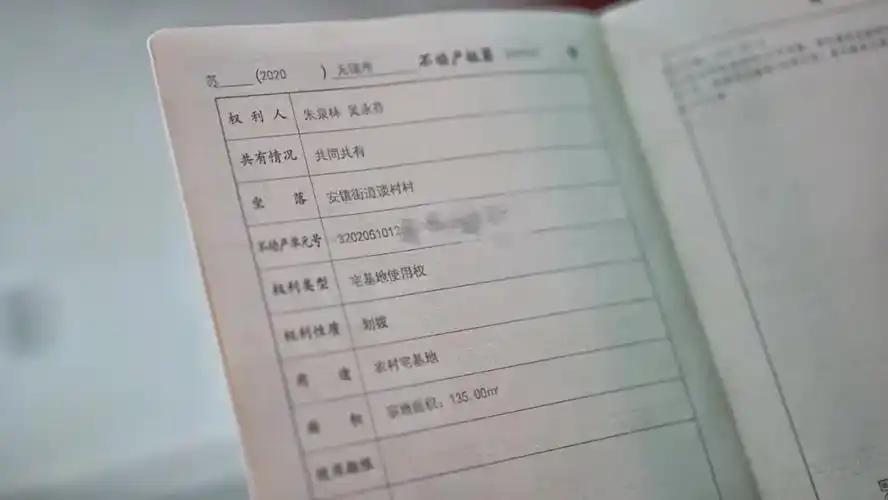 苏 (2020 ) 无锡市 不动产权第 号
权利人 朱泉林
共有情况 共同共有
坐落 安镇街道谈村村
不动产单元号 3202051012
权利类型 宅基地使用权
权利性质 划拨
用途 农村宅基地
面积 宗地面积：135.00㎡
使用期限